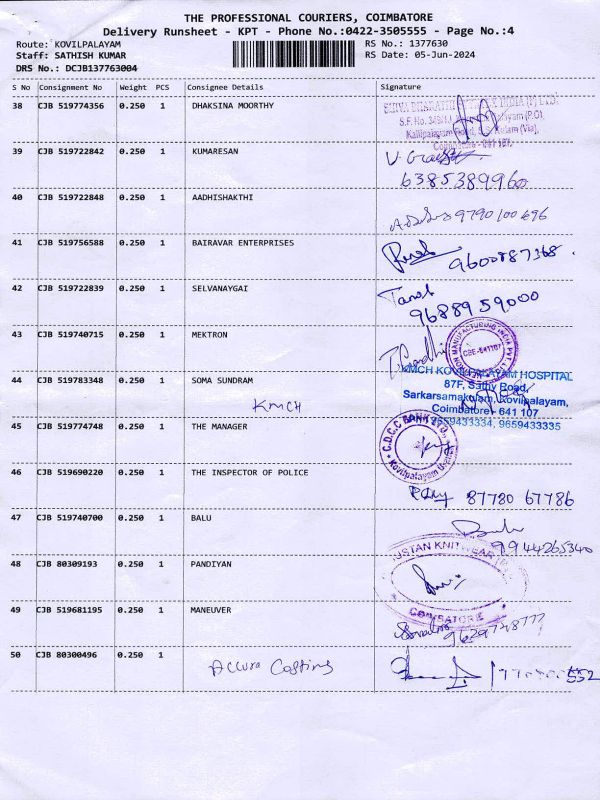 THE PROFESSIONAL COURIERS, COIMBATORE
Delivery Runsheet - KPT - Phone No.:0422-3505555 - Page No.:4
Route: KOVILPALAYAM RS No.: 1377630
Staff: SATHISH KUMAR RS Date: 05-Jun-2024
DRS No.: DCJB137763004
S No Consignment No Weight PCS Consignee Details Signature
38 CJB 519774356 0.250 1 DHAKSINA MOORTHY
39 CJB 519722842 0.250 1 KUMARESAN
6385389960
40 CJB 519722848 0.250 1 AADHISHAKTHI
9790100696
41 CJB 519756588 0.250 1 BAIRAVAR ENTERPRISES
42 CJB 519722839 0.250 1 SELVANAYGAI
9688959000
43 CJB 519740715 0.250 1 MEKTRON
44 CJB 519783348 0.250 1 SOMA SUNDRAM
KMCH
KMCH KOVILPALAYAM HOSPITAL
87F, Sathy Road,
Sarkarsamakulam, Kovilpalayam,
Coimbatore - 641 107
9659433334, 9659433335
45 CJB 519774748 0.250 1 THE MANAGER
C.D.C.C BANK LTD.,
Kovilpalayam
46 CJB 519690220 0.250 1 THE INSPECTOR OF POLICE
87780 67786
47 CJB 519740700 0.250 1 BALU
9944265340
48 CJB 80309193 0.250 1 PANDIYAN
COIMBATORE
49 CJB 519681195 0.250 1 MANEUVER
50 CJB 80300496 0.250 1
Accura Castings